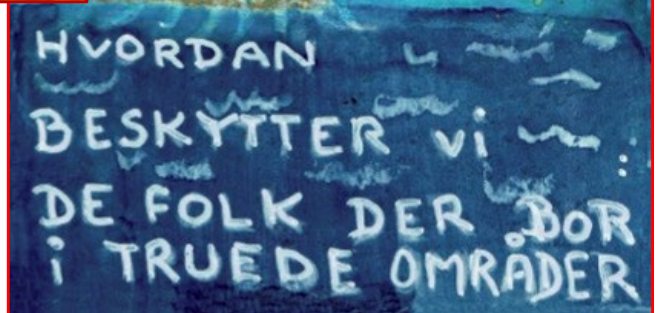 HVORDAN
BESKYTTER vi
DE FOLK DER BOR
i TRUEDE OMRÅDER